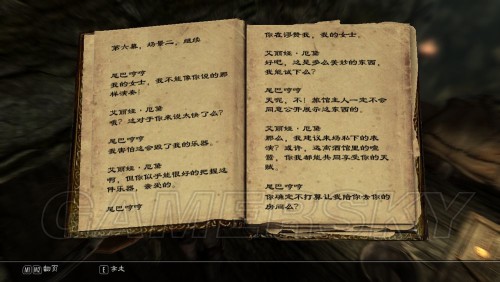 第六幕，场景二，继续
尼巴哼哼
我的女士，我不能像你说的那
样演奏！
艾丽娃·厄黛
哦？这对于你来说太快了么？
尼巴哼哼
我害怕这会毁了我的乐器。
艾丽娃·厄黛
啊，但你似乎能很好的把握这
件乐器，亲爱的。
尼巴哼哼
你在浮赞我，我的女士。
艾丽娃·厄黛
好吧，这是多么美妙的东西，
我能试下么？
尼巴哼哼
天呢，不！旅馆主人一定不会
同意公开展示这东西的。
艾丽娃·厄黛
那么，我建议来场私下的表
演？或许，远离酒馆里的喧
嚣，你我都能共同享受你的天
赋。
尼巴哼哼
你确定不打算让我给你去你的
房间么？
GAMERSKY
M1 M2 翻页
E 拿走